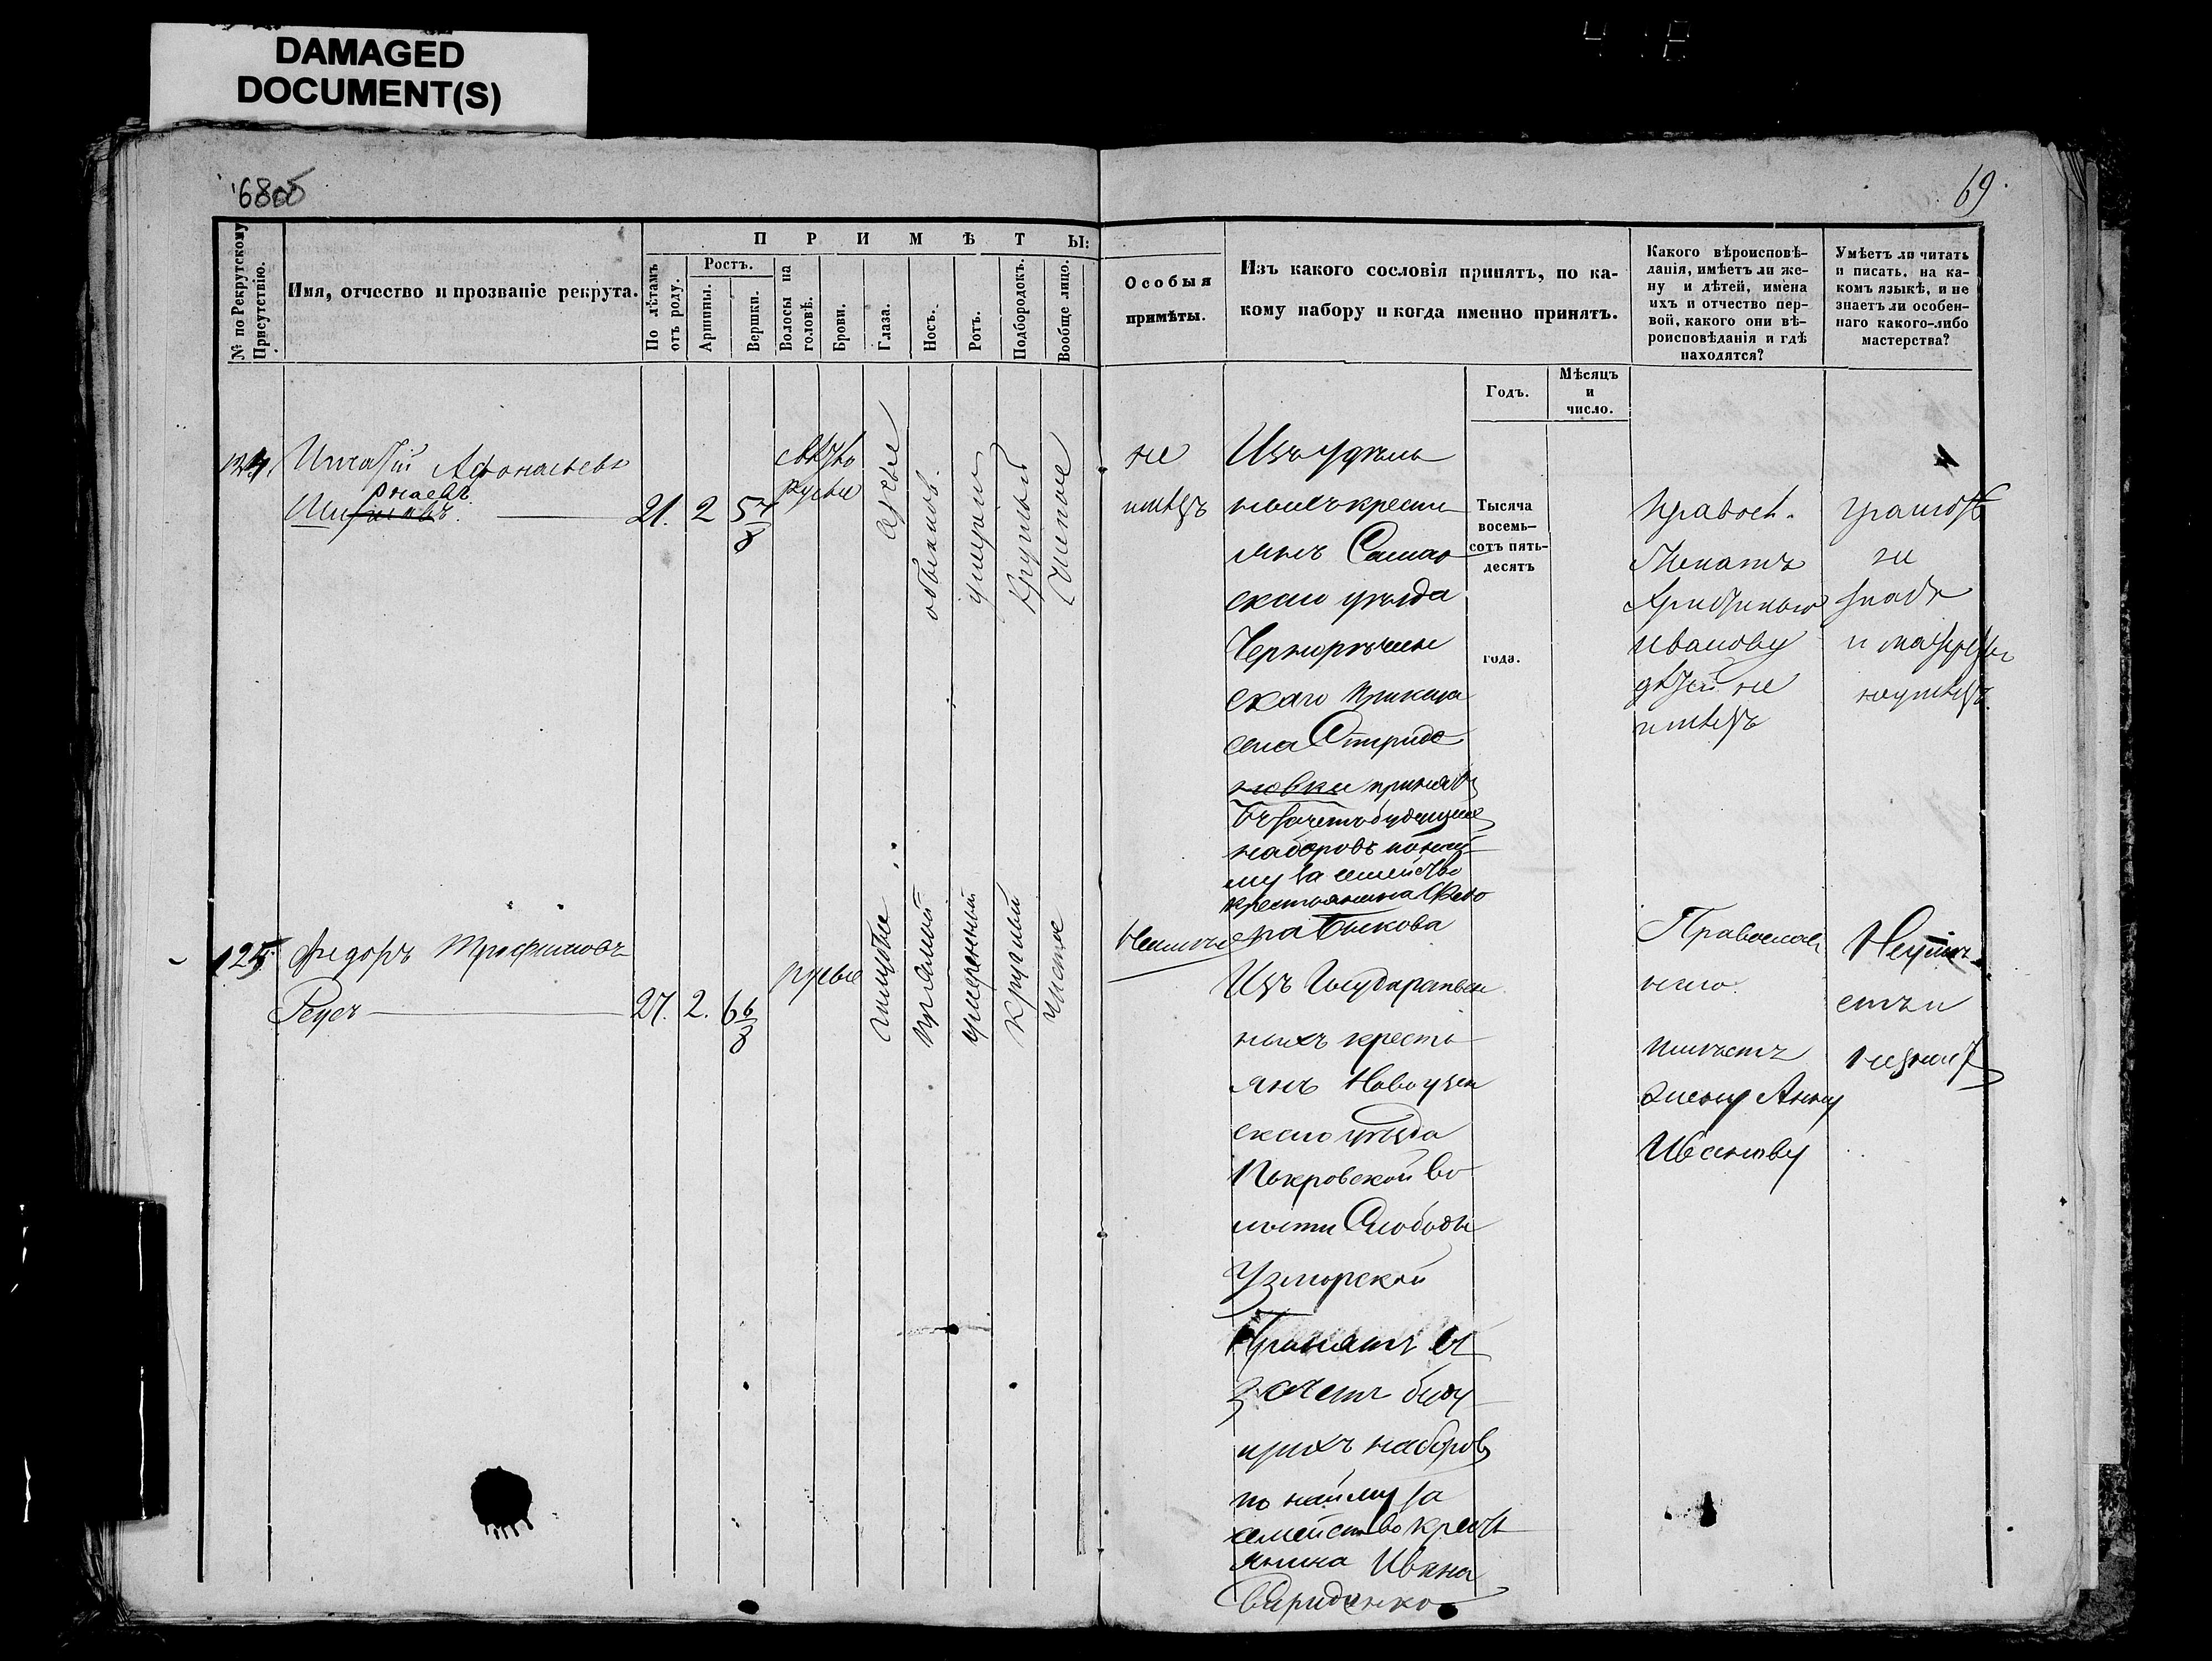 DAMAGED
DOCUMENT(S)
68об
69
№ по Рекрутскому Присутствію.
Имя, отчество и прозваніе рекрута.
ПРИМѢТЫ:
По лѣтамъ отъ роду.
Ростъ.
Аршины.
Вершки.
Волосы на головѣ.
Брови.
Глаза.
Носъ.
Ротъ.
Подбородокъ.
Вообще лицо.
Особыя
примѣты.
Изъ какого сословія принятъ, по ка-
кому набору и когда именно принятъ.
Годъ.
Мѣсяцъ
и
число.
Какого вѣроисповѣ-
данія, имѣетъ ли же-
ну и дѣтей, имена
ихъ и отчество пер-
вой, какого они вѣ-
роисповѣданія и гдѣ
находятся?
Умѣетъ ли читать
и писать, на ка-
комъ языкѣ, и не
знаетъ ли особен-
наго какого-либо
мастерства?
124.
Афонасьевъ
21. 2 5 7/8
свѣтло
русые
сѣрые
обыкнов.
умѣрен
круглый
чистое
не
имѣетъ
Изъ удѣль
ныхъ крестъ
янъ Самар
скаго уѣзда
Чернорѣчен
скаго приказа
села Спиридо
новки принятъ
въ зачетъ будущихъ
наборовъ по най
му за семейство
крестьянина Федо
ра Быкова
Тысяча
восемь-
сотъ пять-
десятъ
года.
Правосл.
Женатъ
Иванову
дѣтей не
имѣетъ
грамотѣ
не
знаетъ
и мастерства
неумѣетъ
125.
Федоръ Трофимовъ
27. 2. 6 6/8
русые
голубые
прямой
умеренный
круглый
чистое
Неимѣе
Изъ Государствен
ныхъ кресть
янъ Новоузен
скаго уѣзда
Покровской во
лости Слободы
Узморской
Принятъ въ
зачетъ буду
щихъ наборовъ
по найму за
семейство кресть
янина Ивана
Православ
наго
имѣетъ
жену Анну
Иванову
Неумѣ-
етъ и
незнает